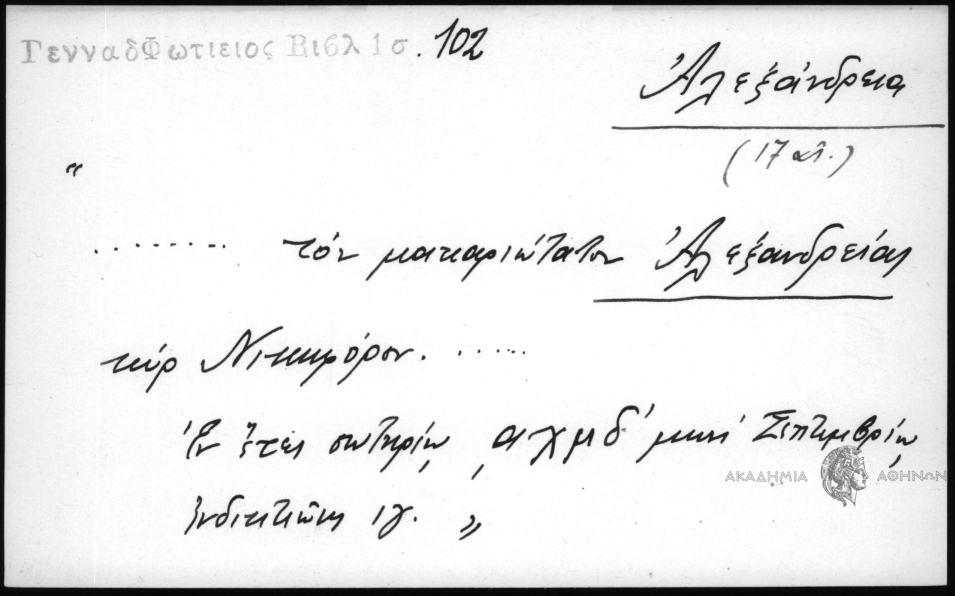 ΓενναδΦωτιειος Βιβλ 1σ. 102
Ἀλεξάνδρεια
(17 αἰ.)
"
......... τὸν μακαριώτατον Ἀλεξανδρείας
κύρ Νικηφόρον. ......
Ἐν ἔτει σωτηρίῳ ͵αχμδʹ μηνί Σεπτεμβρίῳ
ἰνδικτιῶνης ιγ. "
ΑΚΑΔΗΜΙΑ ΑΘΗΝΩΝ